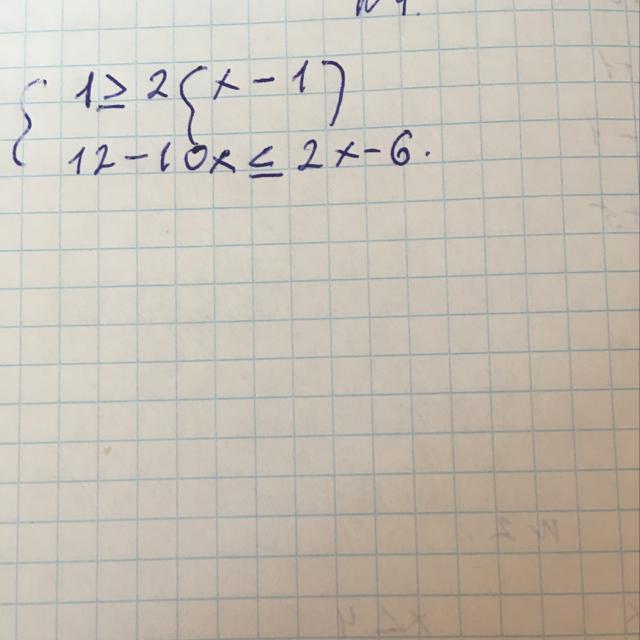 1 ≥ 2(x - 1)
12 - 10x ≤ 2x - 6.